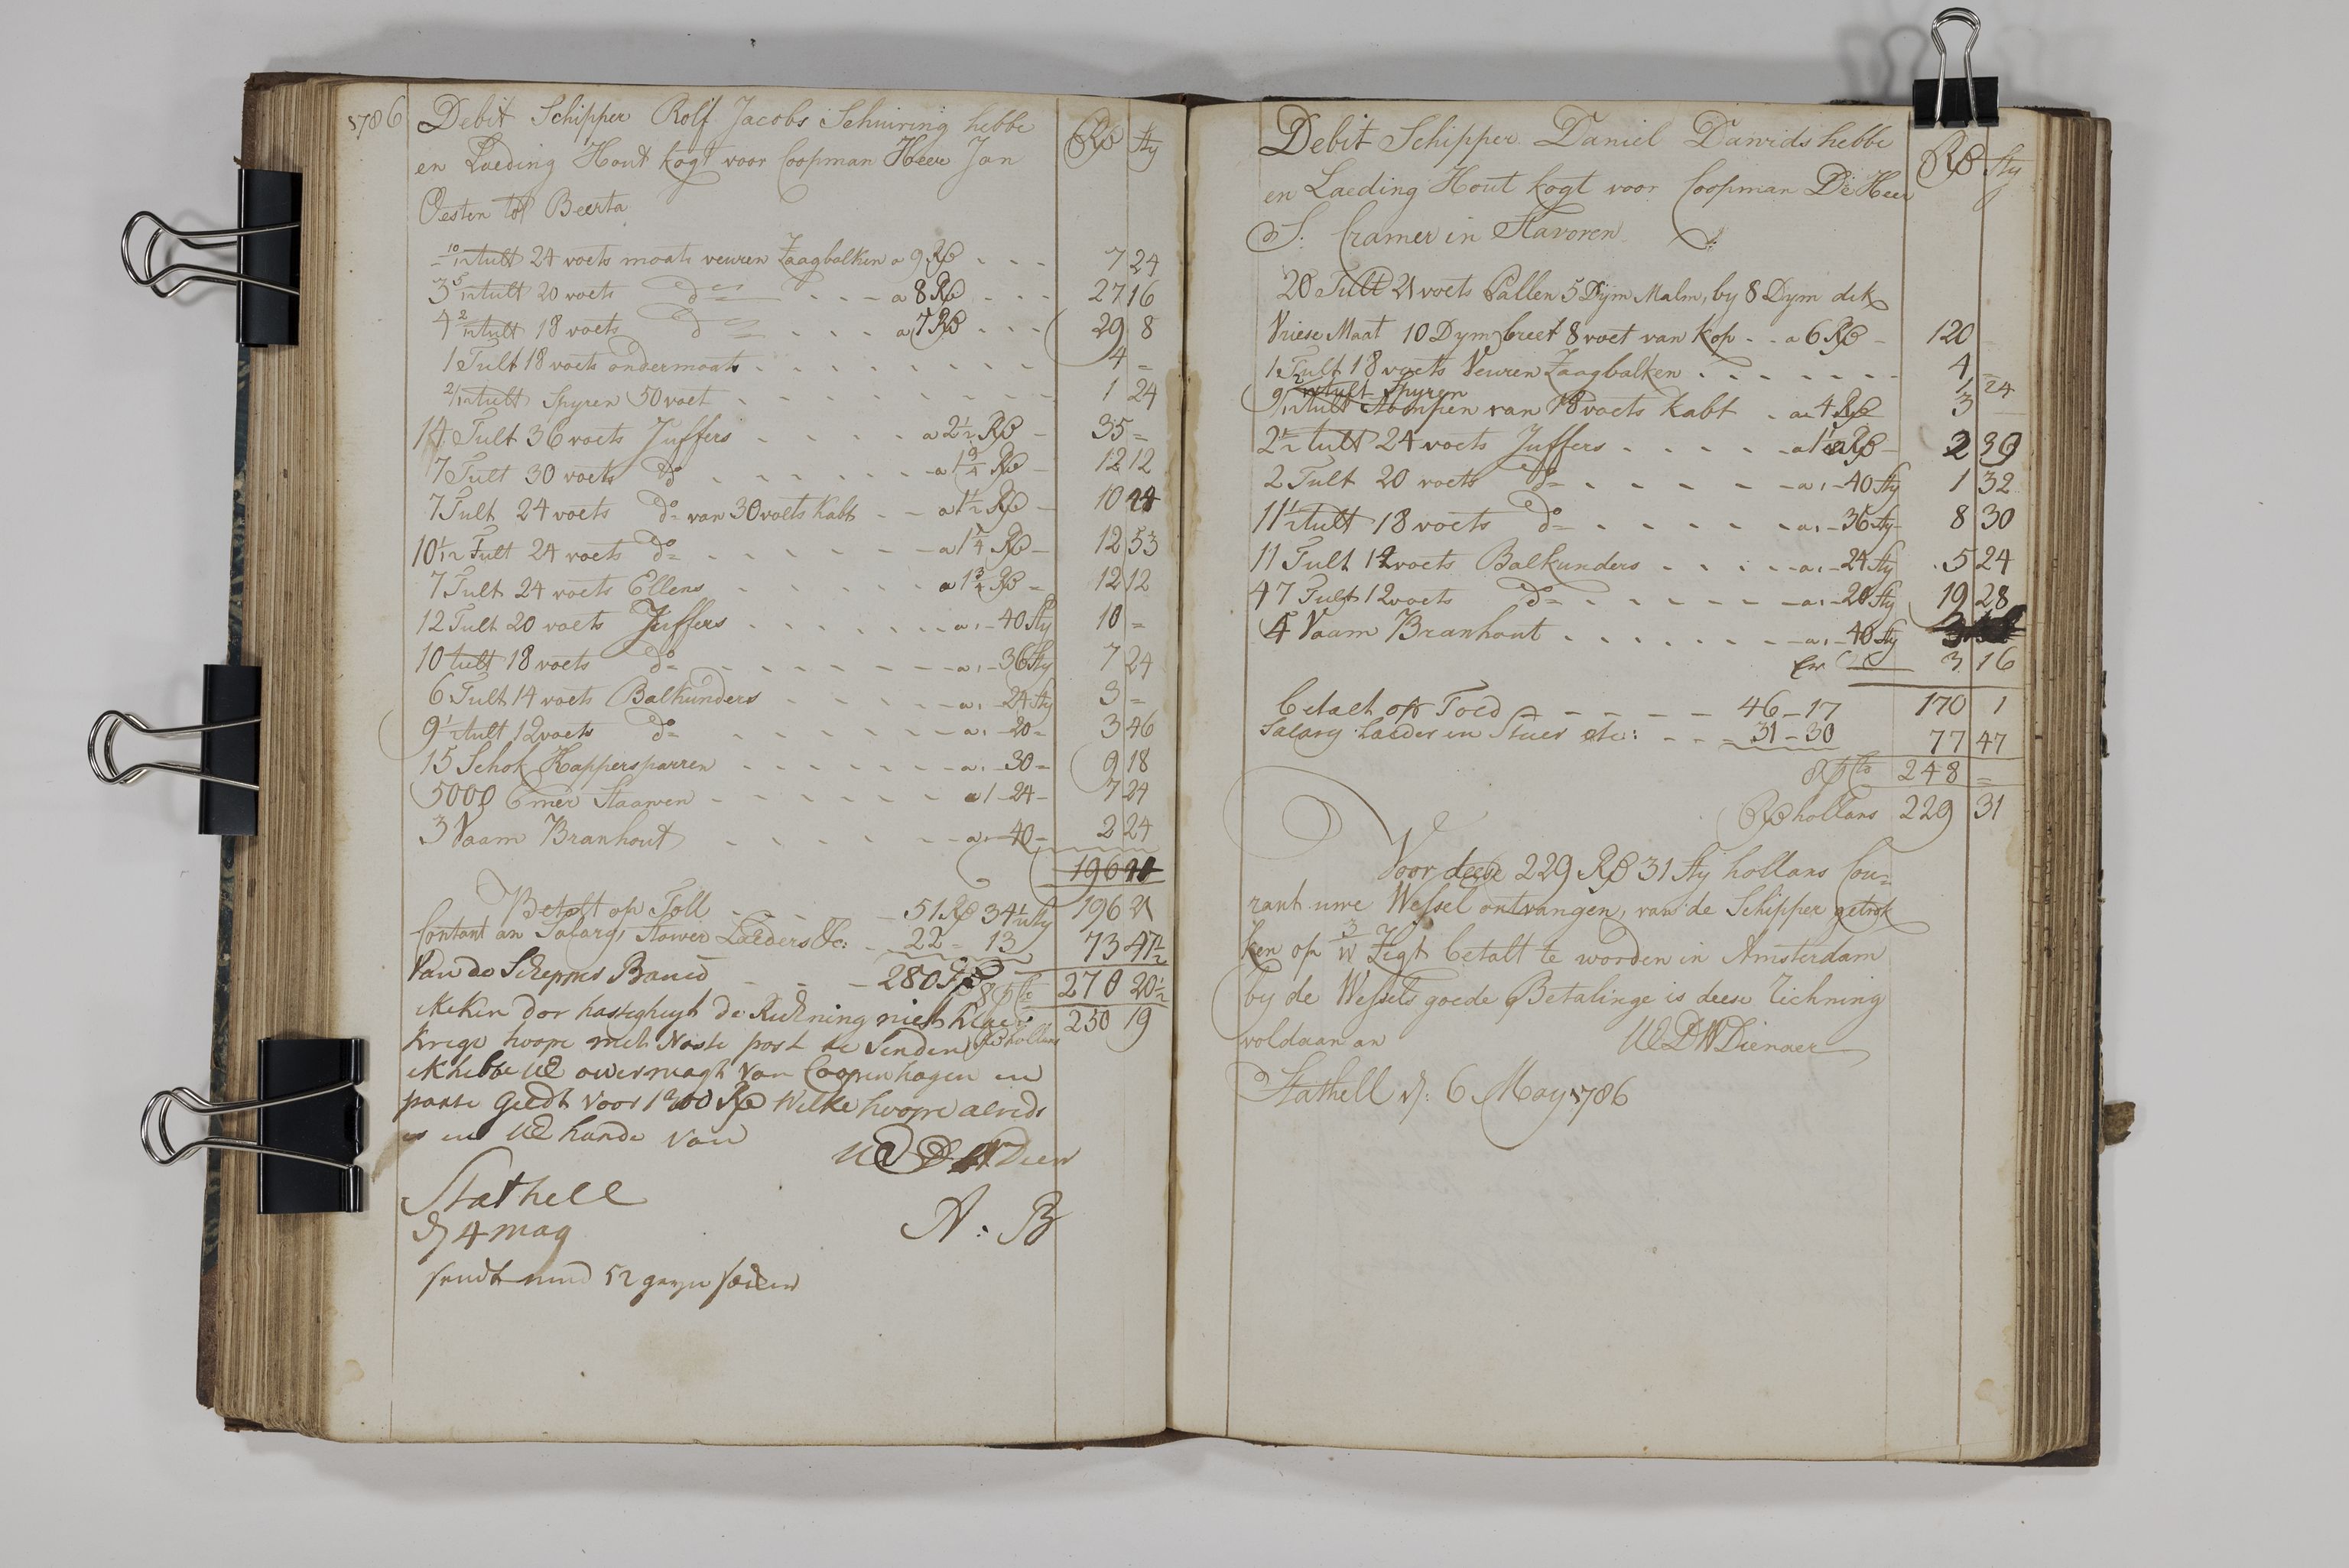 1786 Debit Schipper Rolf Jacobs Schuiring hebbe Rd Sty
en Laeding Hout kogt voor Coopman Heer Jan
Oesten tot Beerta
10/12 tult 24 voets maats veuren Zaagbalken a 9 Rd - - - 7 24
3 5/12 tult 20 voets do - - - a 8 Rd - - - 27 16
4 2/12 tult 18 voets do - - - a 7 Rd - - - 29 8
1 Tult 18 voets ondermaats - - - 4 =
2/12 tult Spyren 50 voet - - - 1 24
14 Tult 36 voets Juffers - - - a 2 1/2 Rd - 35 =
7 Tult 30 voets do - - - a 1 3/4 Rd - 12 12
7 Tult 24 voets do van 30 voets Kabt - - a 1 1/2 Rd - 10 24
10 1/2 Tult 24 voets do - - - a 1 1/4 Rd - 12 53
7 Tult 24 voets Ellens - - - a 1 3/4 Rd - 12 12
12 Tult 20 voets Juffers - - - a - 40 Sty 10 =
10 tult 18 voets do - - - a - 36 Sty 7 24
6 Tult 14 voets Balkunders - - - a - 24 Sty 3 =
9 1/2 tult 12 voets do - - - a - 20 = 3 46
15 Schok Kappersparren - - - a - 30 = 9 18
5000 Emer Staawen - - - a 1 - 24 - 7 24
3 Vaam Branhout - - - a - 40 - 2 24
196 21
Betalt op Toll - - - 51 Rd 34 1/2 Sty 196 21
Contant an Salary, Stower Laeders &c: - 22 = 13 73 47 1/2
Van de Scheppers Banid - - - 280 270 20 1/2
8 P Cto
ik kin dor hastigheyt de Rickning niet klaer 250 19
krege hoope met Naste post te senden Rd hollans
ik hebbe UE owermagt van Coopenhagen en
parti Geldt voor 1200 Rd Welke hoope alreds
is in UE hande van UE D W Dien
Stathell A: B
d 4 may
Debit Schipper Daniel Davids hebbe Rd Sty
en Laeding Hout kogt voor Coopman De Heer
S: Cramer in Stavoren
20 Tult 21 voets Pallen 5 Dym Malm, by 8 Dym dik
Vriese Maat 10 Dym breet 8 voet van kop - - a 6 Rd - 120
1 Tult 18 voets Veuren Zaagbalken - - - 4 =
2/12 tult Spyren 1 24
9/12 tult Stompen van 18 voets Kabt - a 4 Rd 3
2 1/2 tult 24 voets Juffers - - - a 1 Rd - 2 39
2 Tult 20 voets do - - - a - 40 Sty 1 32
11 1/2 tult 18 voets do - - - a - 36 Sty 8 30
11 Tult 14 voets Balkunders - - - a - 24 Sty 5 24
47 Tult 12 voets do - - - a - 20 Sty 19 28
4 Vaam Branhout - - - a - 40 Sty
3 16
betalt op Told - - - 46 - 17 170 1
Salary Laeder en Stuer etc: - - - 31 - 30 77 47
8 P Cto 248 =
Rd hollans 229 31
Voor deese 229 Rd 31 Sty hollans Cou=
rant uwe Wessel ontvangen, van de Schipper getrok
ken op 3/W Zigt betalt te worden in Amsterdam
by de Wessels goede Betalinge is deese Richning
voldaan an UE DW Dienaer
Stathell d: 6 May 1786